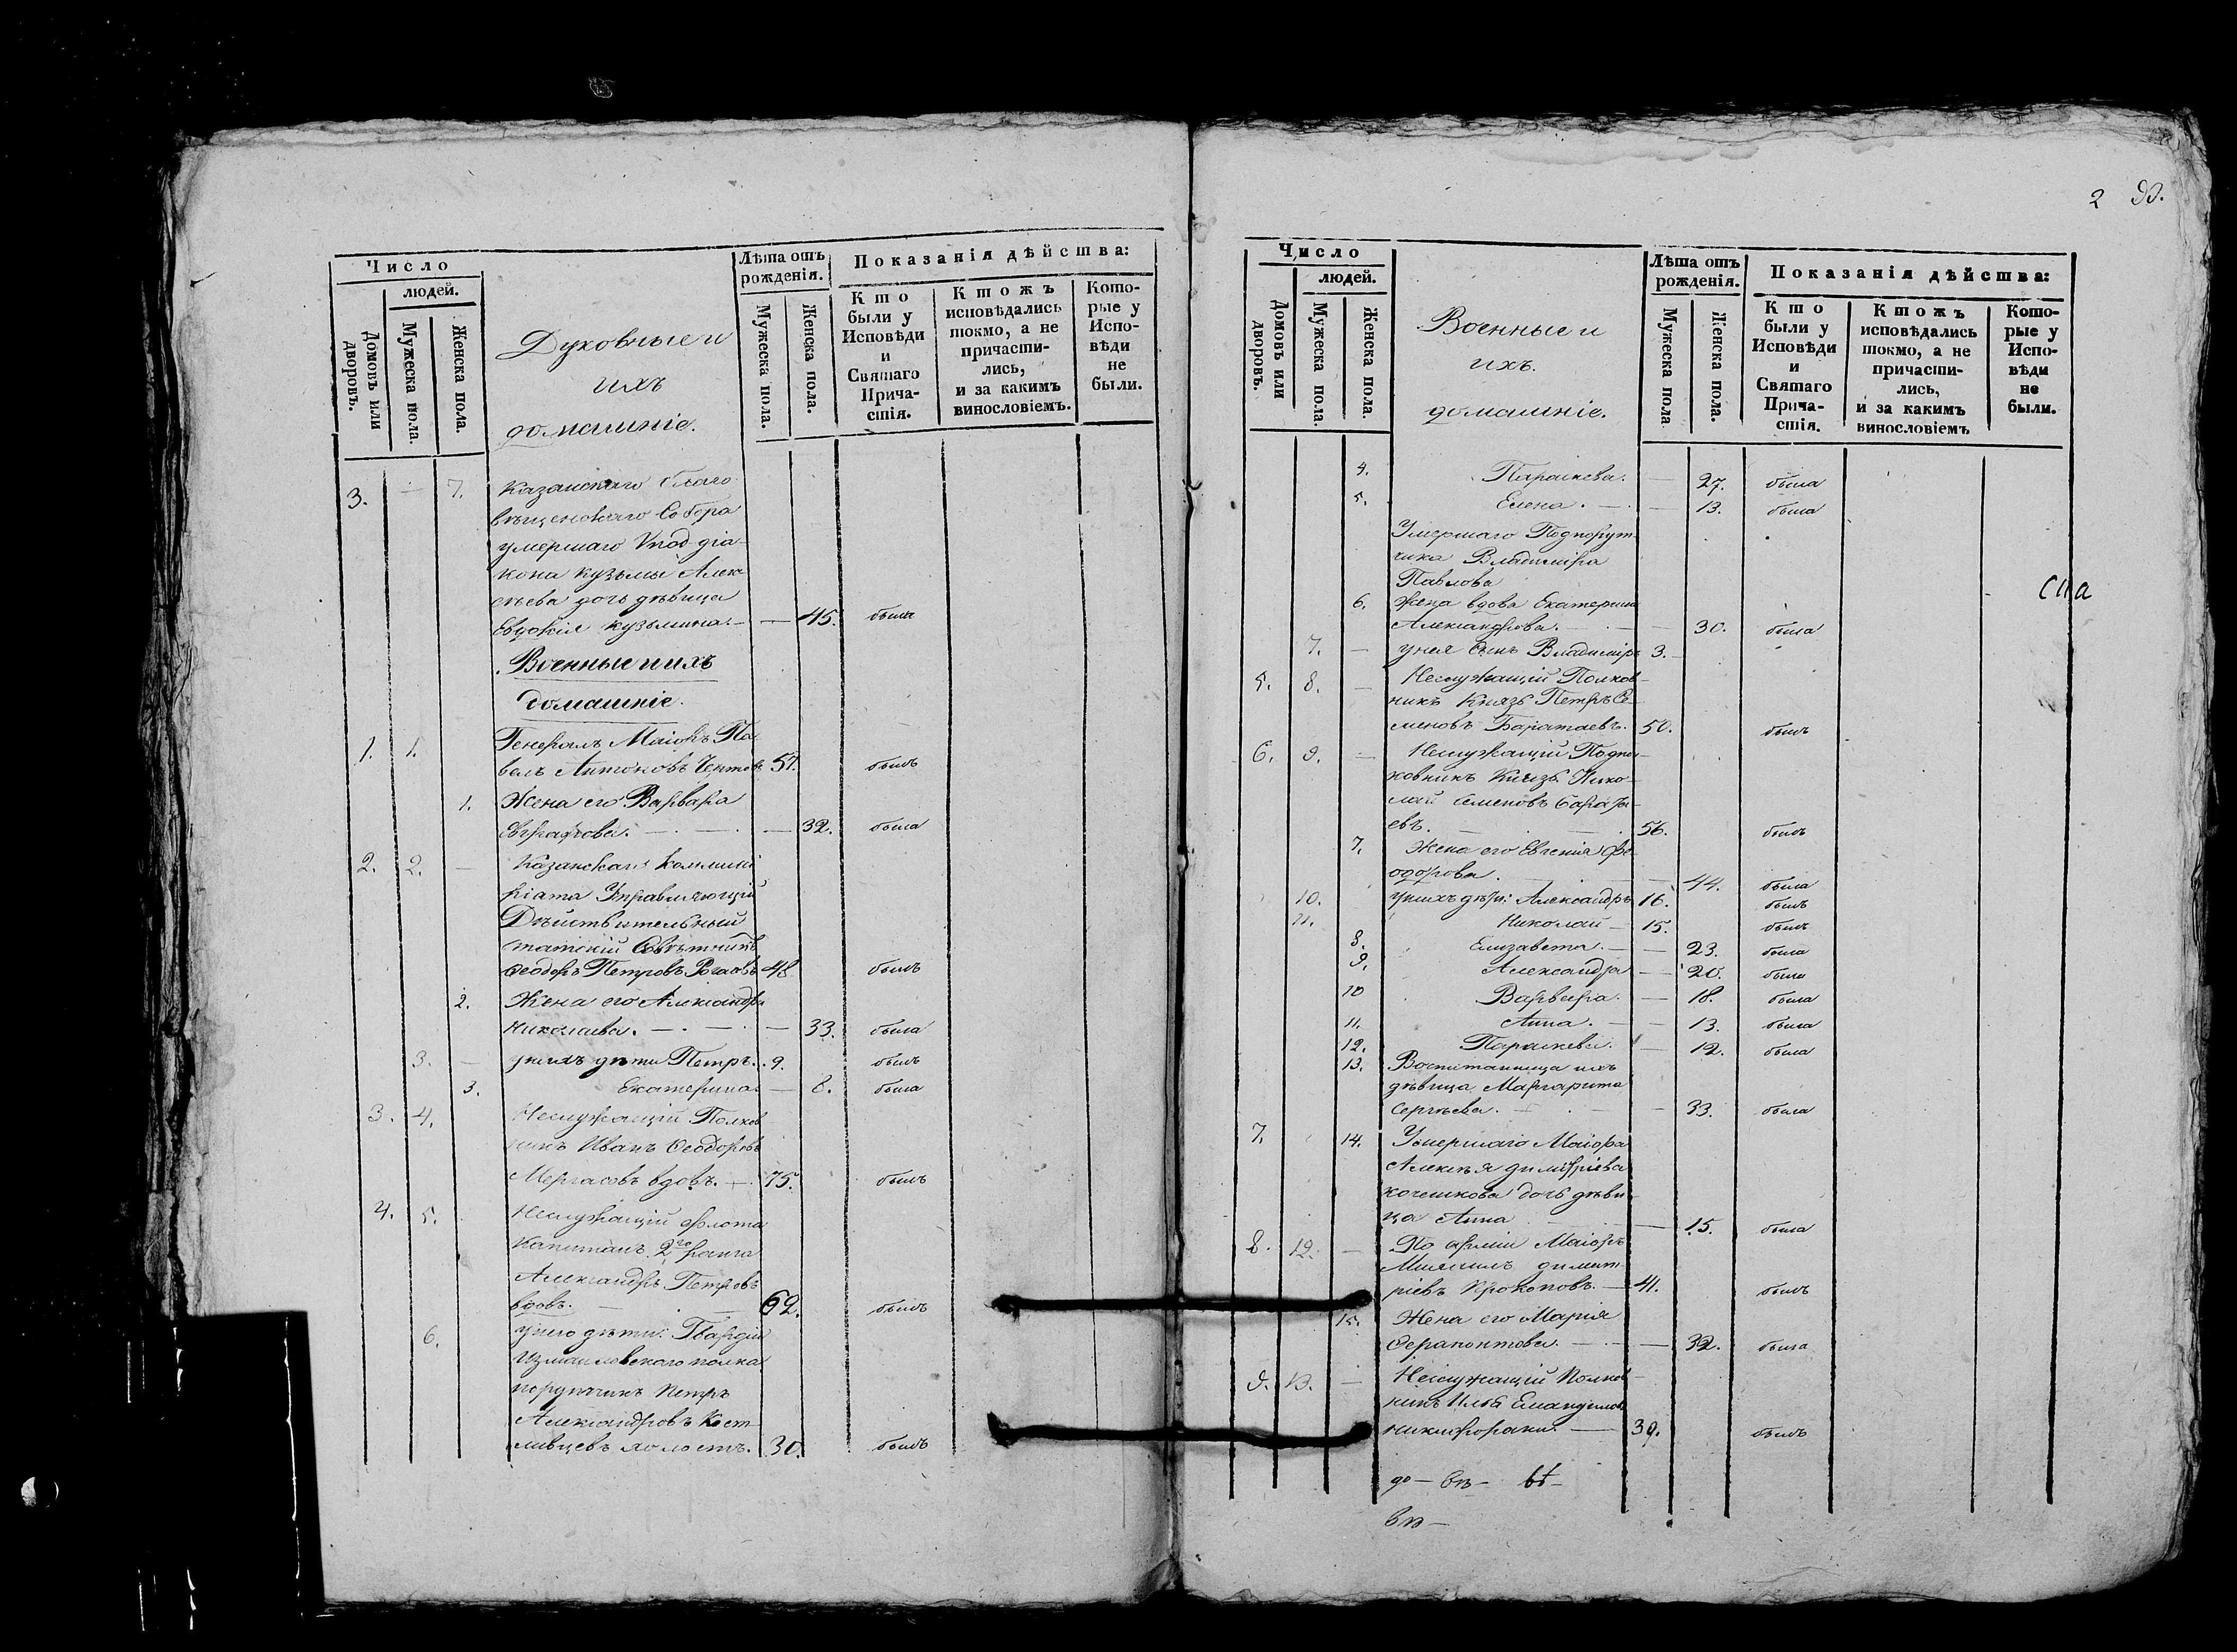 Число
людей.
Домовъ или дворовъ.
Мужеска пола.
Женска пола.
Духовные и
ихъ
домашніе.
Лѣта отъ рожденія.
Мужеска пола.
Женска пола.
Показанія дѣйства:
Кто были у Исповѣди и Святаго Прича-стія.
Ктожъ исповѣдались токмо, а не причасти-лись, и за какимъ винословіемъ.
Кото-рые у Испо-вѣди не были.
3. — 7. Казанскаго Благо
вѣщенскаго Собора
умершаго Vпод діа-
кона Кузьмы Алек
сѣева дочь дѣвица
Евдокія Кузьмина. — — 45. была
Военные и ихъ
домашніе.
1. 1. Генералъ Маіоръ Па
велъ Антоновъ 57. былъ
1. Жена его Варвара
Евграфова. — 32. была
2. 2. — Казанскаго Коммиси
ріата Управляющій
Дѣйствительный
статскій Совѣтникъ
Ѳеодоръ Петровъ 48 былъ
2. Жена его Александра
Николаева. — — 33. была
3. — у нихъ дѣти Петръ. 9. былъ
3. Екатерина. — 8. была
3. 4. Неслужащій Полков
никъ Иванъ Ѳеодоровъ
Мергасовъ вдовъ. — 75. былъ
4. 5. Неслужащій флота
Капитанъ 2го ранга
Александръ Петровъ
вдовъ. — 62. былъ
6. у него дѣти: Гвардіи
Измаиловскаго полка
порутчикъ Петръ
Александровъ Кост
ливцевъ холостъ. 30. былъ
2
Число
людей.
Домовъ или дворовъ.
Мужеска пола.
Женска пола.
Военные и
ихъ.
домашніе.
Лѣта отъ рожденія.
Мужеска пола
Женска пола.
Показанія дѣйства:
Кто были у Исповѣди и Святаго Прича-стія.
Ктожъ исповѣдались токмо, а не причасти-лись, и за какимъ винословіемъ
Кото-рые у Испо-вѣди не были.
4. Параскева. — 27. была
5. Елена. — — 13. была
Умершаго Подпорут
чика Владиміра
Павлова
6. жена вдова Екатерина
Александрова. — — 30. была
7. — у нея Сынъ Владиміръ 3. —
5. 8. — Неслужащій Полков-
никъ Князь Петръ Се-
меновъ Баратаевъ. 50. былъ
6. 9. — Неслужащій Подпол-
ковникъ Князь Нико-
лай Семеновъ Барата-
евъ. — 56. былъ
7. Жена его Евгенія Фе-
одорова — — 44. была
10. у нихъ дѣти: Александръ 16. былъ
11. Николай — 15. былъ
8. Елизавета. — — 23. была
9. Александра — 20. была
10 Варвара. — 18. была
11. Анна. — — 13. была
12. Параскева. — 12. была
13. Воспитанница ихъ
дѣвица Маргарита
Сергѣева. — — 33. была
7. 14. Умершаго Маіора
Алексѣя Димитріева
дочь дѣви
ца Анна — 15. была
8. 12. — По арміи Маіоръ
Михаилъ Димит
ріевъ Прокоповъ. — 41. былъ
15. Жена его Марія
Ѳерапонтова. — — 32. была
9. 13. — Неслужащій Полков-
никъ Илья
— 39. былъ